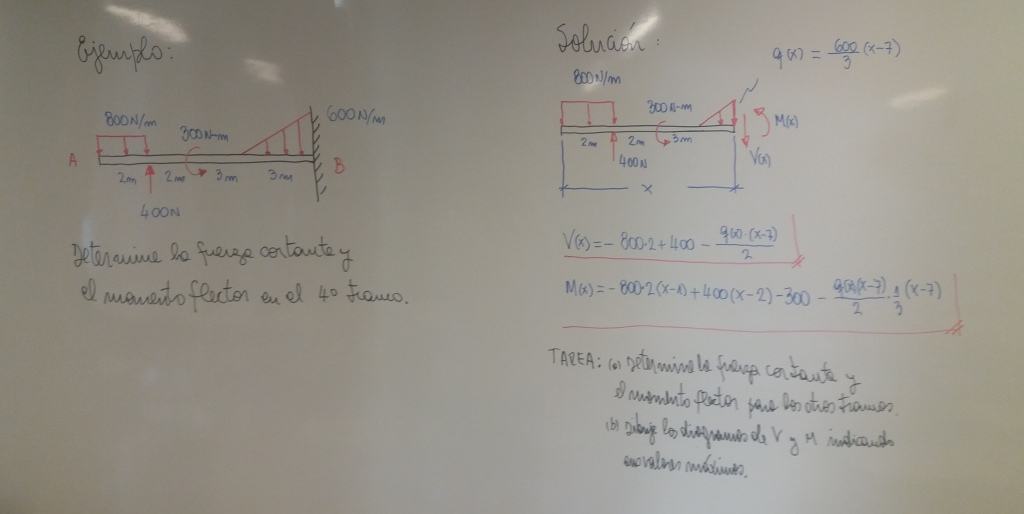 Ejemplo:
800N/m
300N-m
600N/m
A
B
2m 2m 3m 3m
400N
Determine la fuerza cortante y
el momento flector en el 4º tramo.
Solución:
q(x) = 600/3 (x-7)
800N/m
300N-m
M(x)
2m 2m 3m
400N
V(x)
x
V(x) = - 800·2 + 400 - q(x)·(x-7)/2
M(x) = - 800·2 (x-1) + 400 (x-2) - 300 - q(x)(x-7)/2 · 1/3 (x-7)
TAREA: (a) Determine la fuerza cortante y
el momento flector para los otros tramos.
(b) Dibuje los diagramas de V y M indicando
valores máximos.